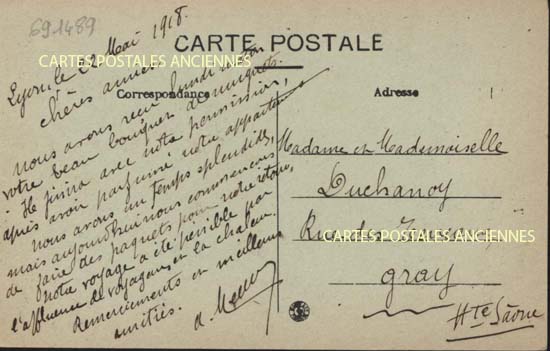 691489
CARTE POSTALE
CARTES POSTALES ANCIENNES
Correspondance
Adresse
Lyon, le 22 Mai 1918
Chères amies
Nous avons reçu lundi
votre beau bouquet de muguets.
Il finira avec notre permission,
après avoir parfumé notre appartement
Nous avons un temps splendide,
mais aujourd'hui nous commençons
de faire des paquets pour notre retour,
Notre voyage a été pénible par
l'affluence de voyageurs et la chaleur.
Remerciements et meilleures
amitiés.
Madame et Mademoiselle
Duchanoy
Rue des
CARTES POSTALES ANCIENNES
Gray
Hte Saône